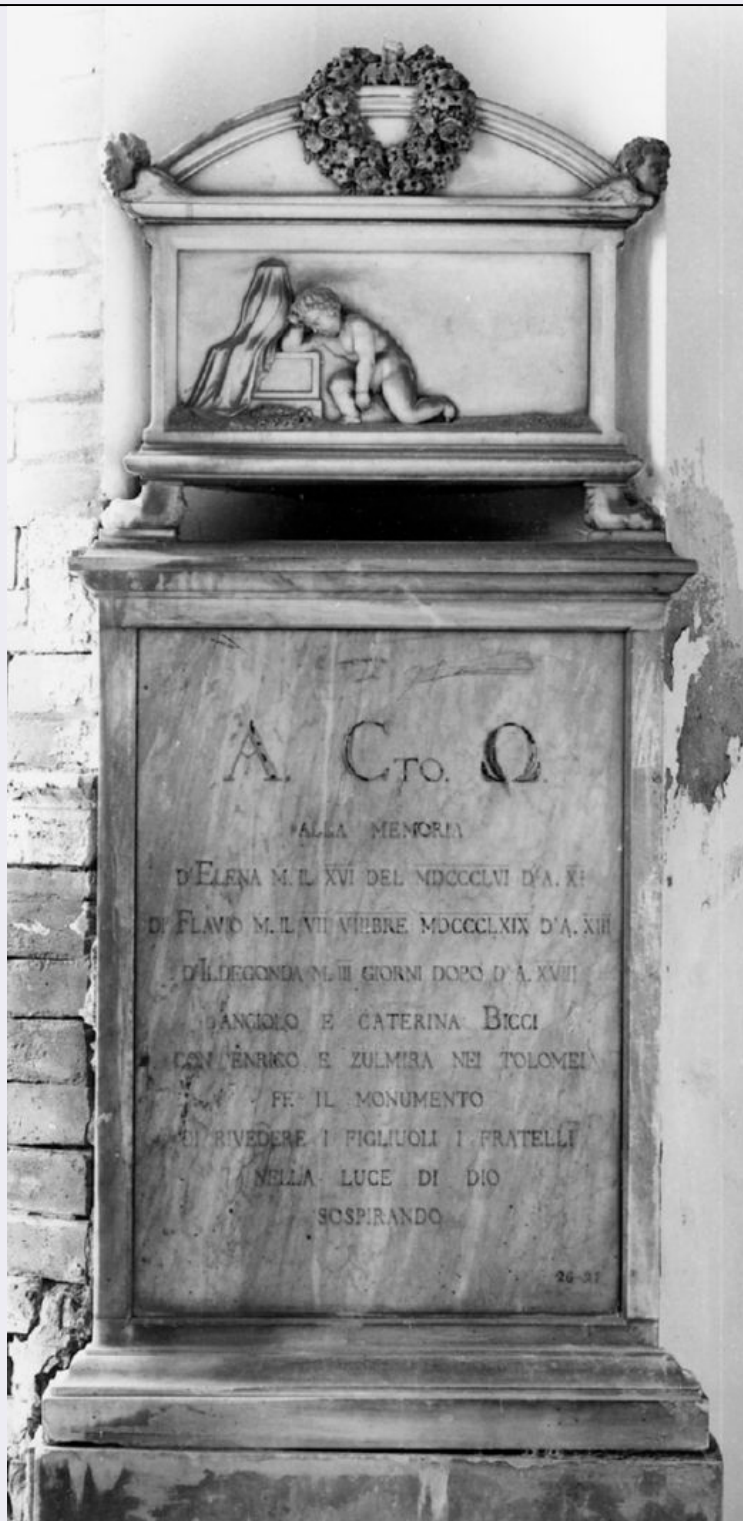 A. CTO. Ω.
ALLA MEMORIA
D'ELENA M. IL XVI DEL MDCCCLVI D'A. XI
DI FLAVIO M. IL VII VIIBRE MDCCCLXIX D'A. XIII
D'ILDEGONDA M. III GIORNI DOPO D'A. XVIII
ANGIOLO E CATERINA BICCI
CON ENRICO E ZULMIRA NEI TOLOMEI
FE IL MONUMENTO
DI RIVEDERE I FIGLIUOLI I FRATELLI
NELLA LUCE DI DIO
SOSPIRANDO